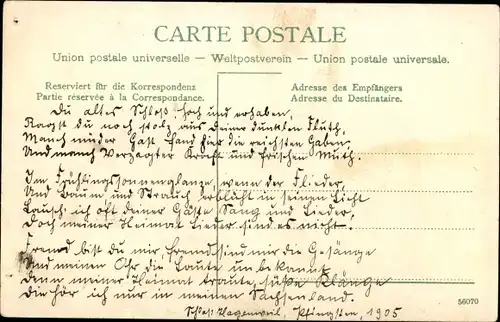 CARTE POSTALE
Union postale universelle — Weltpostverein — Union postale universale.
Reserviert für die Korrespondenz
Partie réservée à la Correspondance.
Adresse des Empfängers
Adresse du Destinataire.
Du altes Schloß! hoch und erhaben,
Ragst du noch stolz aus deiner dunklen Fluth,
Manch müder Gast fand hier die reichsten Gaben
Und manch Verzagter Kraft und frischen Muth.
Im Frühlingssonnenglanze, wenn der Flieder,
Und Baum und Strauch erblüht in seinem Licht
Lausch' ich oft deiner Gäste Sang und Lieder,
Doch meiner Heimat Lieder sind es nicht.
Fremd bist du mir, fremd sind mir die Gesänge
Und meinem Ohr die Laute unbekannt
Denn meiner Heimat traute, süße Klänge
Die hör' ich nur in meinem Sachsenland.
Schloß Hagenweil, Pfingsten, 1905
56070